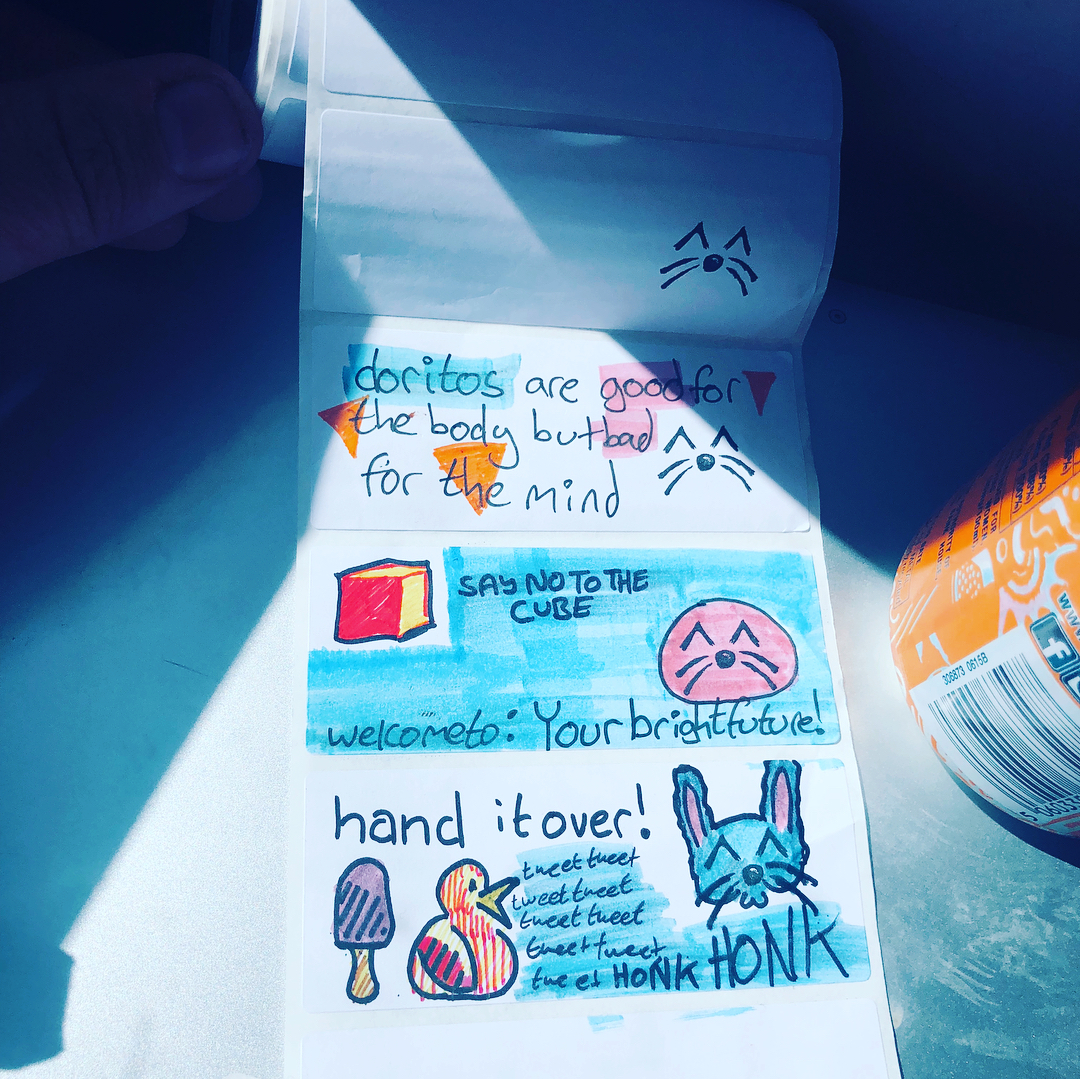 doritos are good for
the body but bad
for the mind
SAY NO TO THE
CUBE
welcome to: Your bright future!
hand it over!
tweet tweet
tweet tweet
tweet tweet
tweet tweet
tweet HONK HONK
306873 0615B